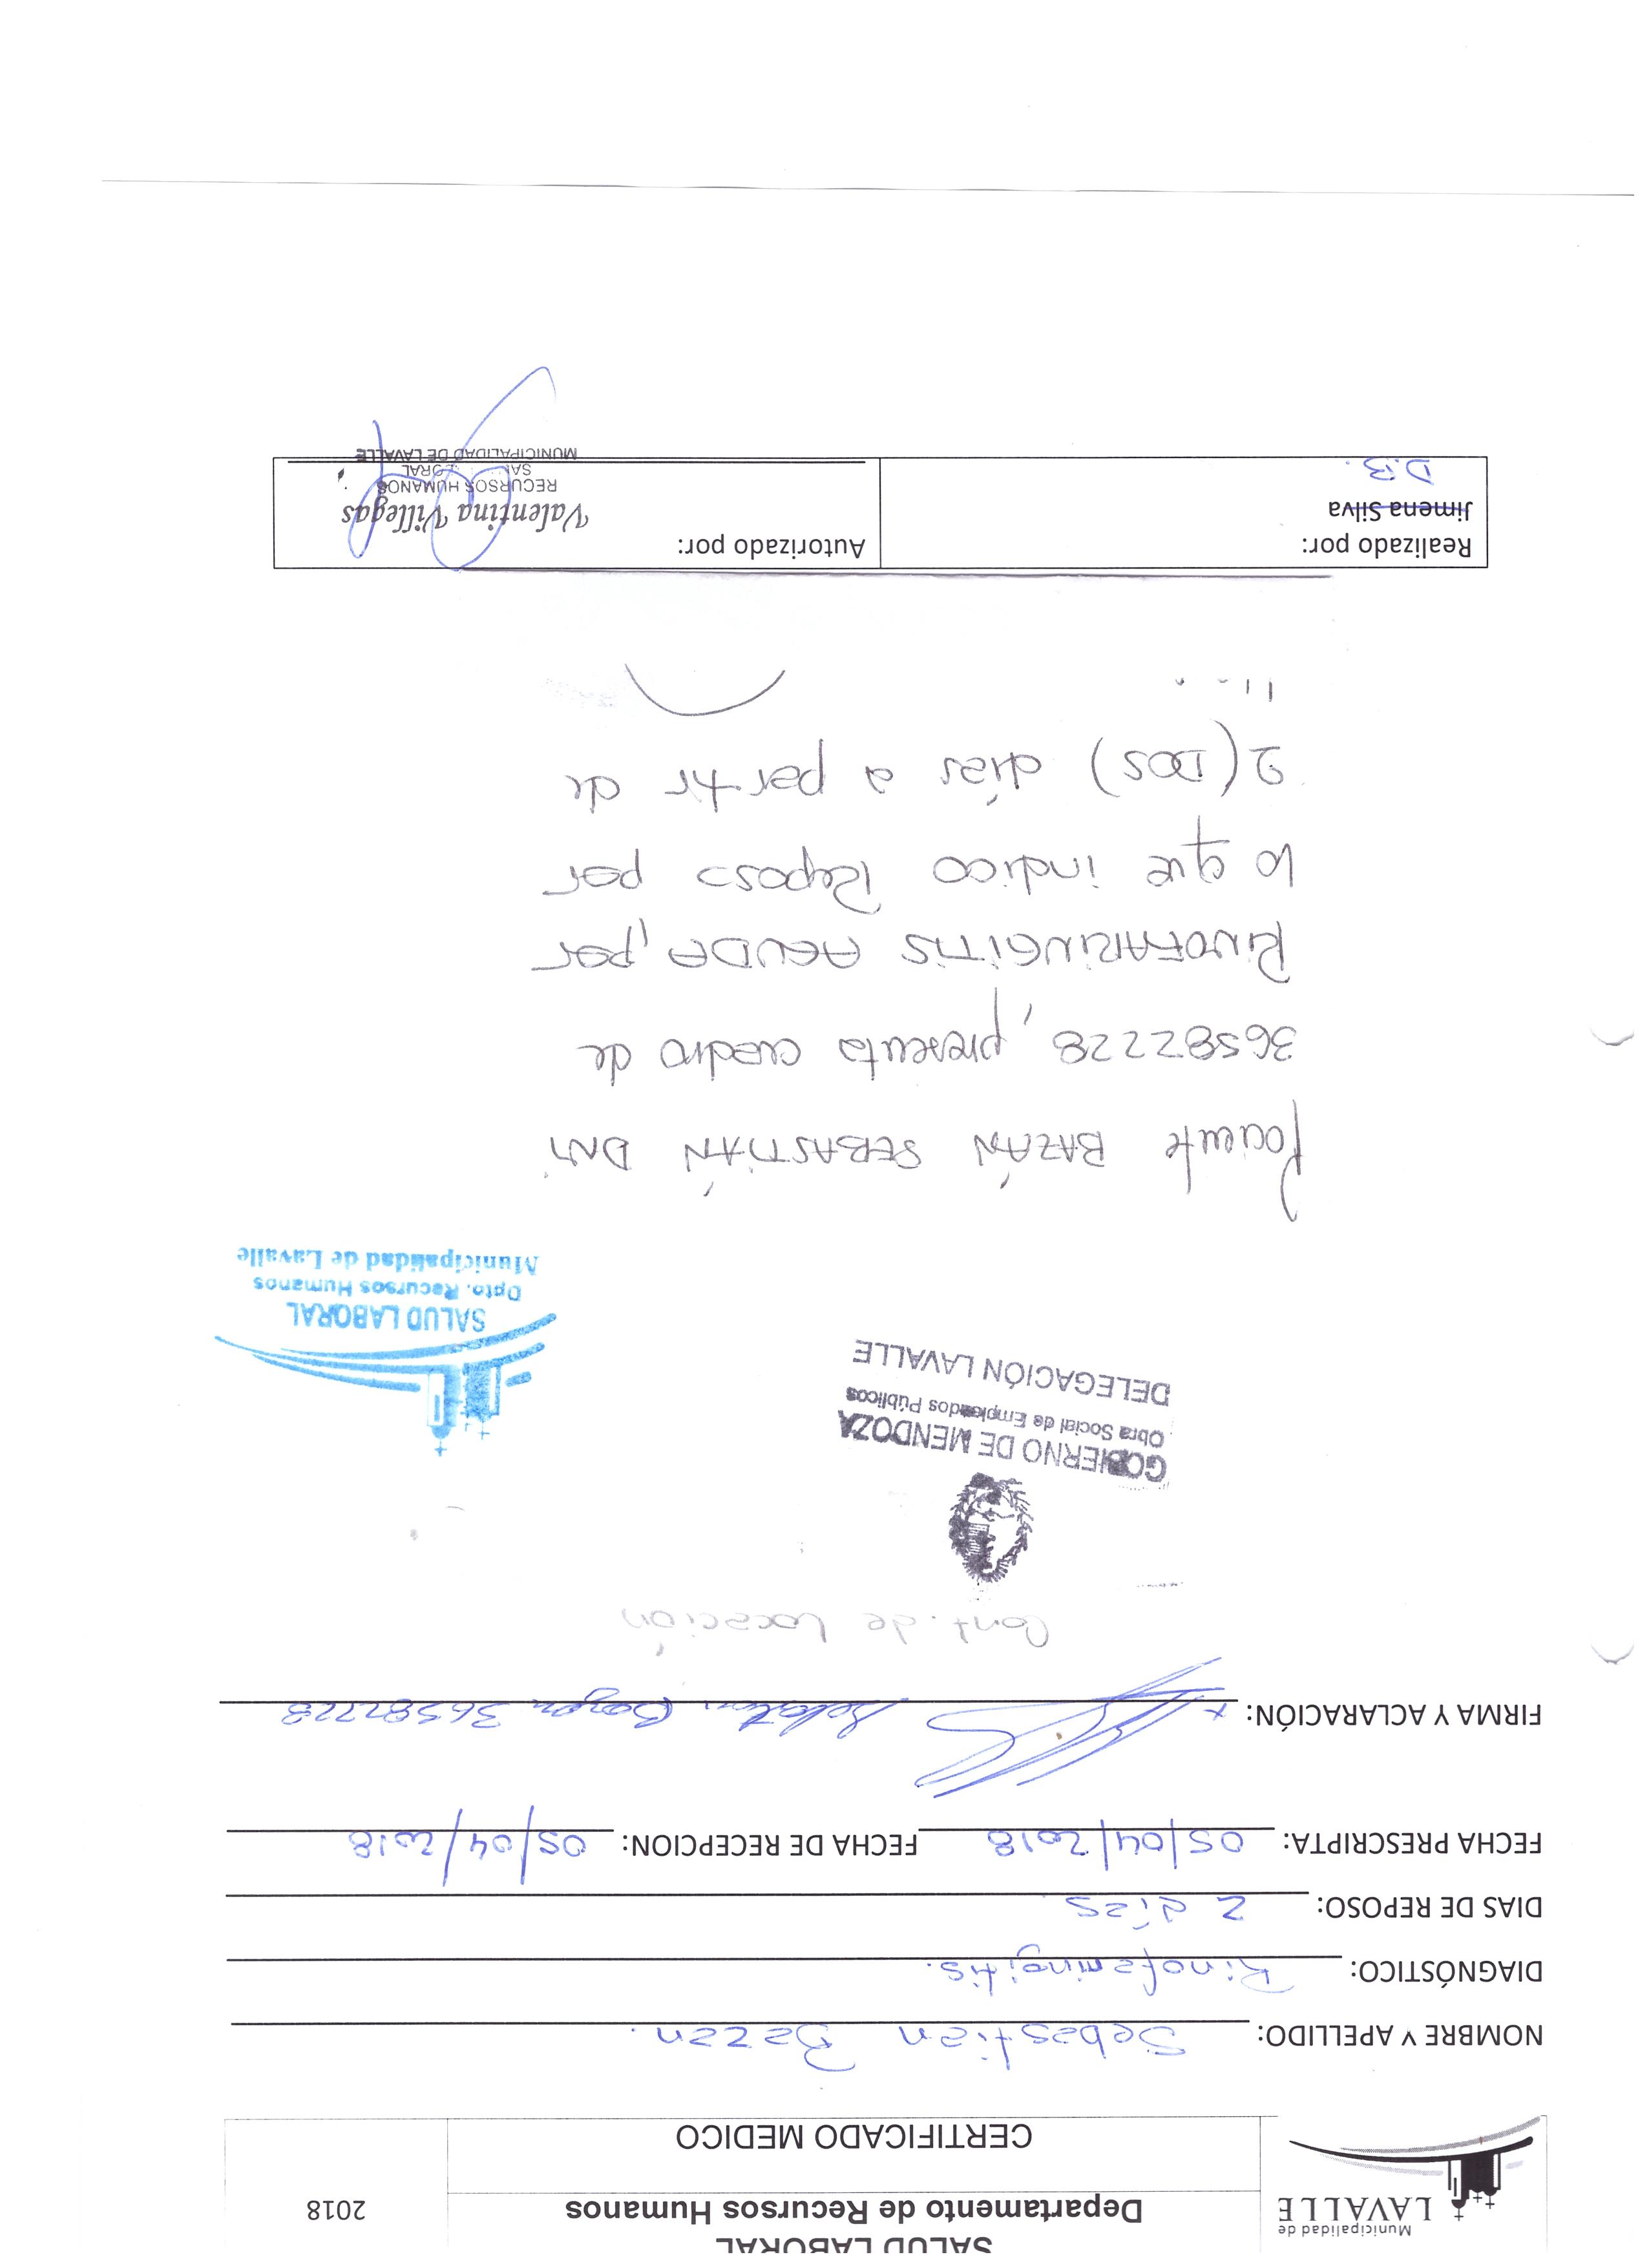 Municipalidad de
LAVALLE
SALUD LABORAL
Departamento de Recursos Humanos
2018
CERTIFICADO MEDICO
NOMBRE Y APELLIDO: Sebastian Bazan.
DIAGNÓSTICO: Rinofaringitis.
DIAS DE REPOSO: 2 días
FECHA PRESCRIPTA: 05/04/2018 FECHA DE RECEPCION: 05/04/2018
FIRMA Y ACLARACIÓN: x Sebastian Bazan 36582228
Cont. de Locación
GOBIERNO DE MENDOZA
Obra Social de Empleados Públicos
DELEGACIÓN LAVALLE
SALUD LABORAL
Dpto. Recursos Humanos
Municipalidad de Lavalle
Paciente BAZÁN SEBASTIÁN DNI
36582228, presenta cuadro de
RINOFARINGITIS AGUDA, por
lo que indico Reposo por
2 (DOS) días a partir de
Realizado por:
Jimena Silva
D.B.
Autorizado por:
Valentina Villegas
RECURSOS HUMANOS
MUNICIPALIDAD DE LAVALLE